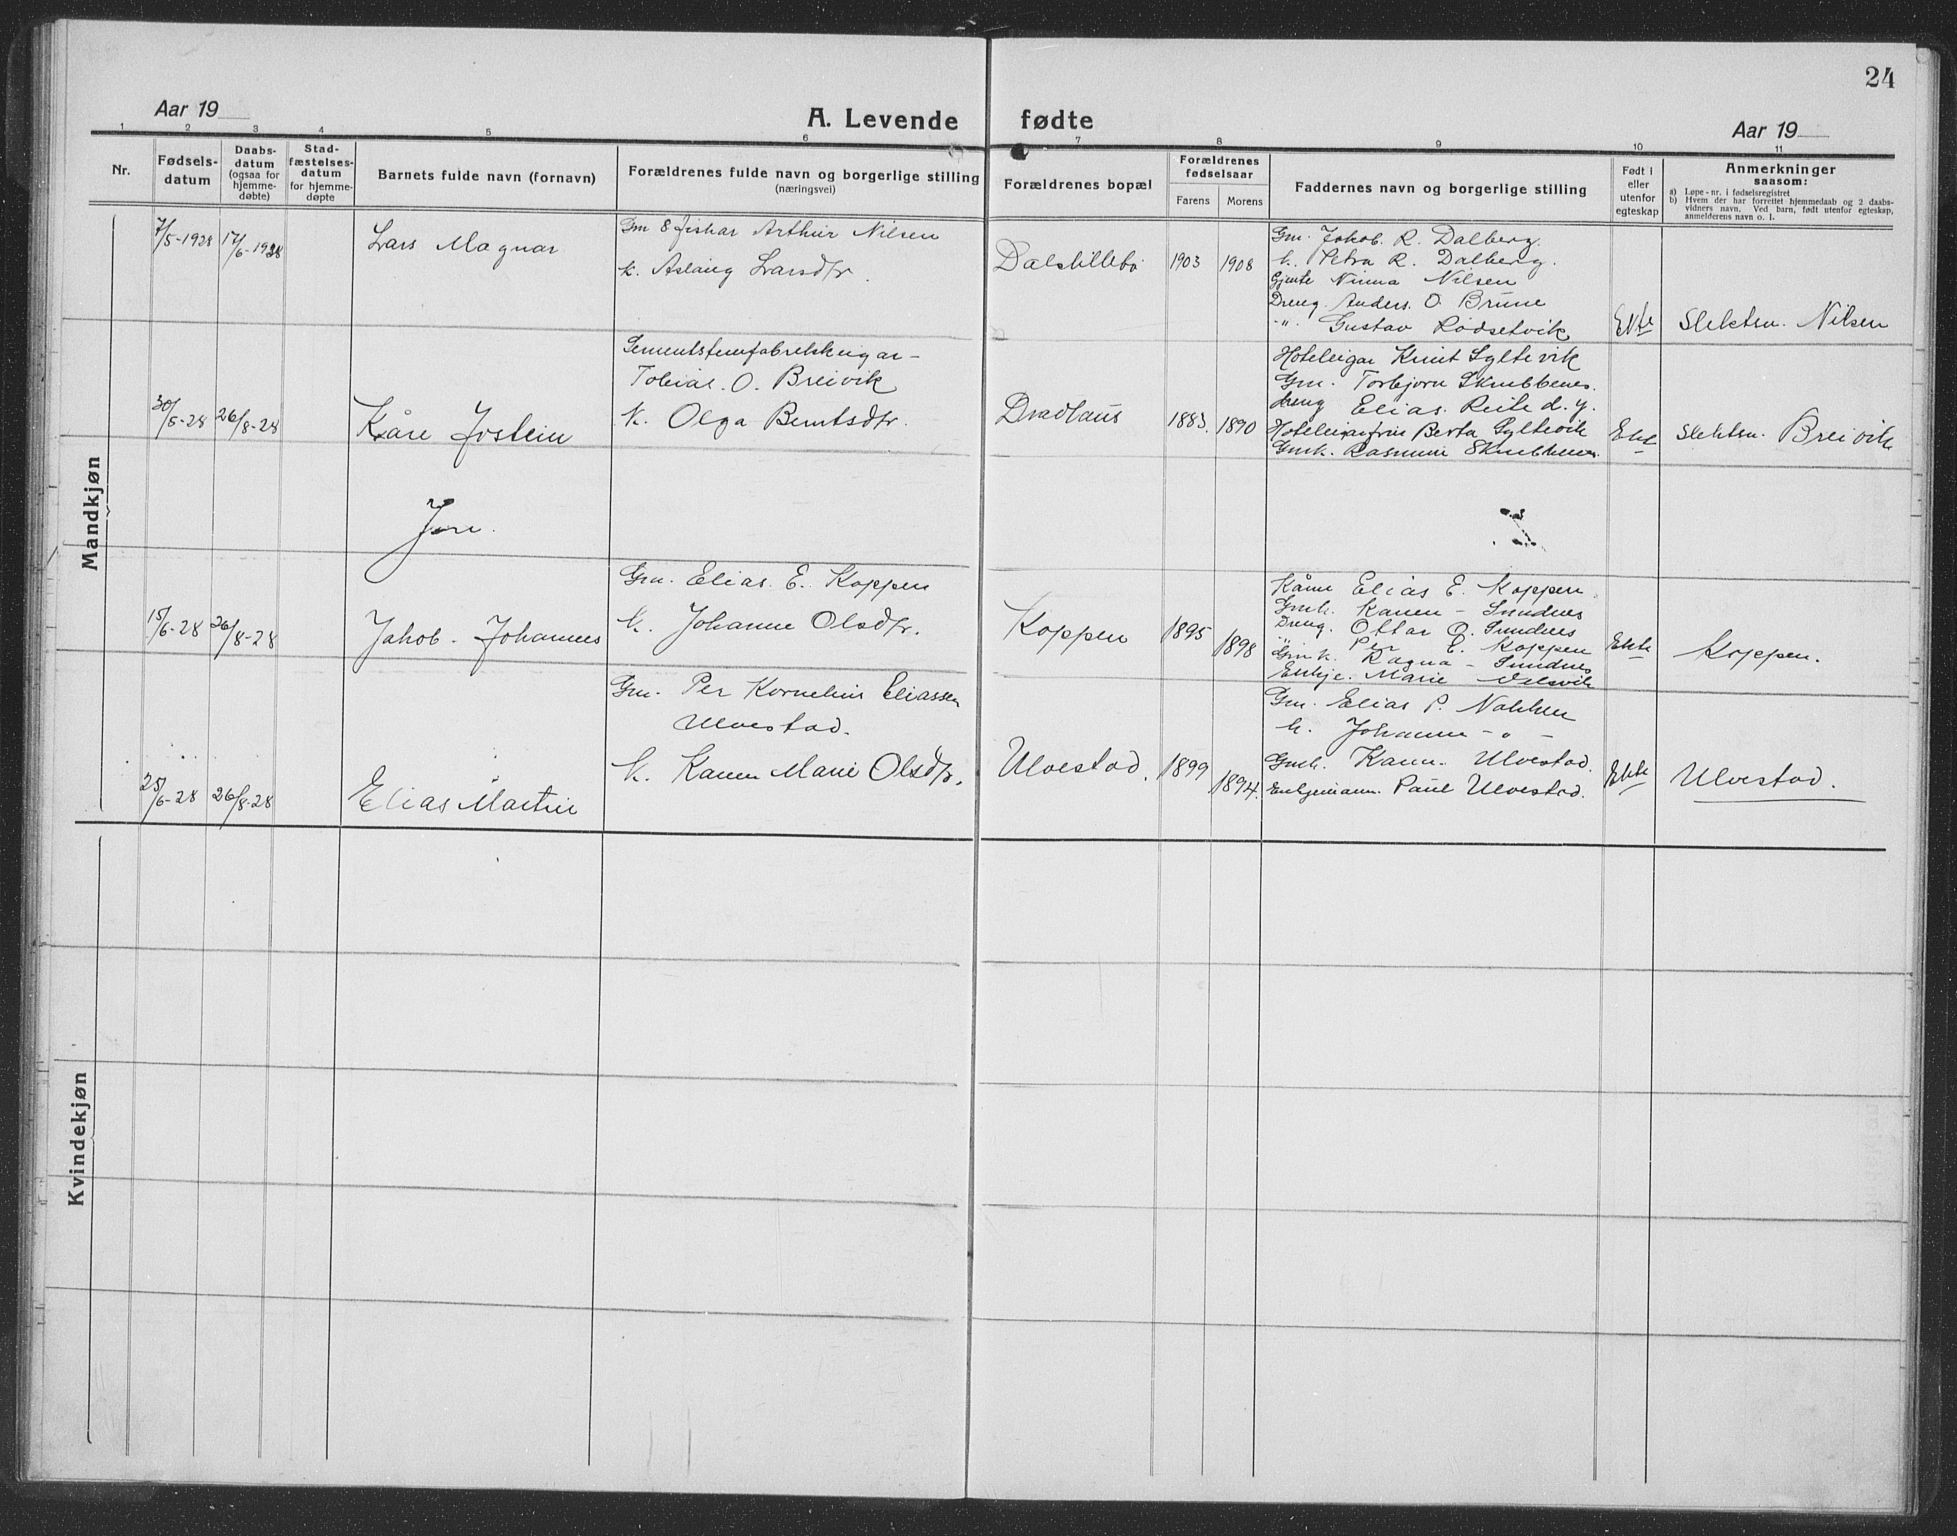 24
Aar 19
A. Levende fødte
Aar 19
1 2 3 4 5 6 7 8 9 10 11
Nr.
Fødsels-
datum
Daabs-
datum
(ogsaa for
hjemme-
døbte)
Stad-
fæstelses-
datum
for hjemme-
døpte
Barnets fulde navn (fornavn)
Forældrenes fulde navn og borgerlige stilling
(næringsvei)
Forældrenes bopæl
Forældrenes
fødselsaar
Farens Morens
Faddernes navn og borgerlige stilling
Født i
eller
utenfor
egteskap
Anmerkninger
saasom:
a) Løpe-nr. i fødselsregistret
b) Hvem der har forrettet hjemmedaab og 2 daabs-
vidners navn. Ved barn, født utenfor egteskap,
anmelderens navn o. l.
Mandkjøn
7/5-1928 17/6-1928
Lars Magnar
Gm & fiskar Arthur Nilsen
k. Aslaug Larsdtr.
1903 1908
Gm. Jakob. R. Dalberg.
k. Petra R. Dalberg.
Gjente Ninna Nilsen
Dreng. Anders. O. Brune
-"- Gustav Rødsetvik
Ekte
Slektsn. Nilsen
30/5-28 26/8-28
Kåre Jostein
Tobias. O. Breivik
K. Olga Berntsdtr.
1883. 1890
Hoteleigar Knut Syltevik
Gm. Torbjørn Skrubbenes.
dreng Elias. Reite d. y.
Hoteleigarfru Berta Syltevik
Gmk. Rasmine Skrubbenes.
Ekte
Slektsn. Breivik
15/6-28 26/8-28
Jakob - Johannes
Gm. Elias. E. Koppen
K. Johanne Olsdtr.
Koppen
1895 1898
Elias E. Koppen.
Gmk. Karen - Sundnes
Dreng. Ottar O. Sundnes
-"- Per E. Koppen
Gmk. Ragna - Sundnes
Enkje. Marie
Ekte
Koppen.
25/6-28 26/8-28
Elias Martin
Gm. Per Kornelius Eliassen
Ulvestad.
K. Karen Marie Olsdtr.
Ulvestad.
1899 1894.
Gm. Elias P. Nakken
k. Johanne - " -
Gmk. Karen. Ulvestad.
Enkjemann. Paul Ulvestad.
Ekte
Ulvestad.
Kvindekjøn